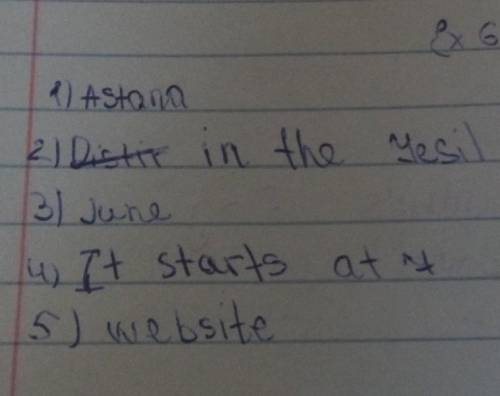 Ex 6
1) Astana
2) Distir in the Yesil
3) June
4) It starts at 7
5) website